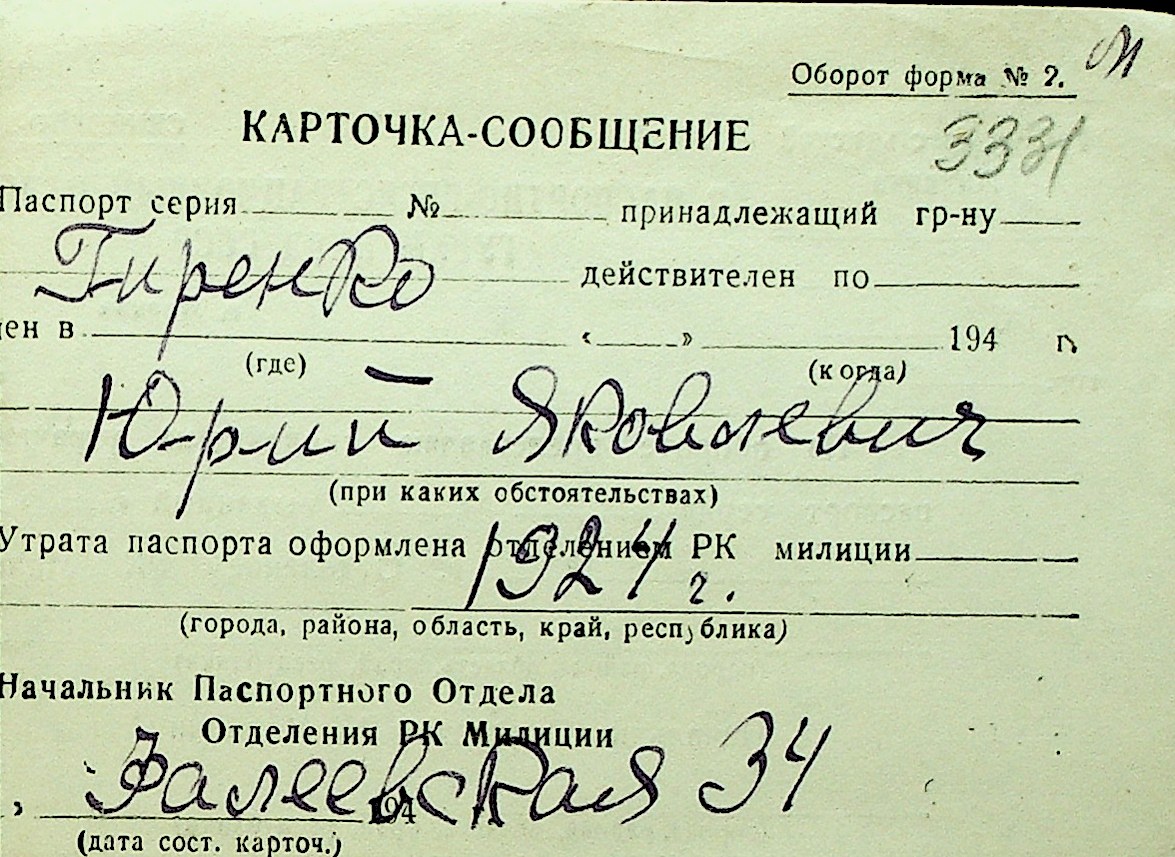 Оборот форма № 2.
КАРТОЧКА-СООБЩЕНИЕ
3331
Паспорт серия № принадлежащий гр-ну
Гиренко действителен по
ен в « » 194 г.
(где) (когда)
Юрий Яковлевич
(при каких обстоятельствах)
Утрата паспорта оформлена отделением РК милиции
1924 г.
(города, района, область, край, республика)
Начальник Паспортного Отдела
Отделения РК Милиции
Фалеевская 34
194
(дата сост. карточ.)